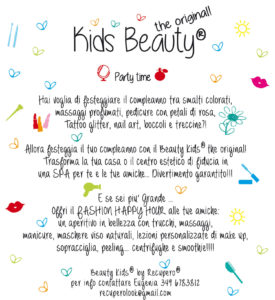 the original!
Kids Beauty®
Party time
Hai voglia di festeggiare il compleanno tra smalti colorati,
massaggi profumati, pedicure con petali di rosa,
Tattoo glitter, nail art, boccoli e treccine?!
Allora festeggia il tuo compleanno con il Beauty Kids® the original!
Trasforma la tua casa o il centro estetico di fiducia in
una SPA per te e le tue amiche... Divertimento garantito!!!
E se sei piu' Grande ...
Offri il FASHION HAPPY HOUR alle tue amiche:
un aperitivo in bellezza con trucchi, massaggi,
manicure, maschere viso naturali, lezioni personalizzate di make up,
sopracciglia, peeling... centrifughe e smoothie!!!!
Beauty Kids® by Recupero®
per info contattare Eugenia 349 6783812
recuperolooi@gmail.com